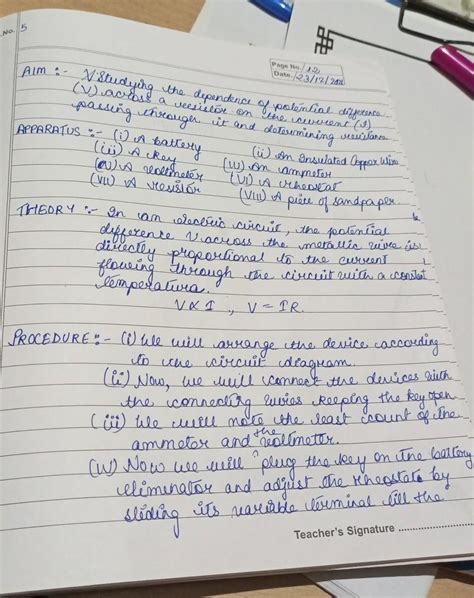 No. 5
Page No. 12
Date. 23/12/202
AIM :- Studying the dependence of potential difference
(V) across a resistor on the current (I)
passing through it and determining resistance
APPARATUS :- (i) A battery (ii) An Insulated Copper Wire
(iii) A key (IV) An ammeter
(V) A voltmeter (VI) A rheostat
(VII) A resistor (VIII) A piece of sandpaper
THEORY :- In an electric circuit, the potential
difference V across the metallic wire is
directly proportional to the current
flowing through the circuit with a constant
temperature.
V∝I , V=IR.
PROCEDURE :- (i) We will arrange the device according
to the circuit diagram.
(ii) Now, we will connect the devices with
the connecting wires keeping the key open
(iii) We will note the least count of the
ammeter and the voltmeter.
(IV) Now we will plug the key on the battery
eliminator and adjust the rheostate by
sliding its variable terminal till the
Teacher's Signature